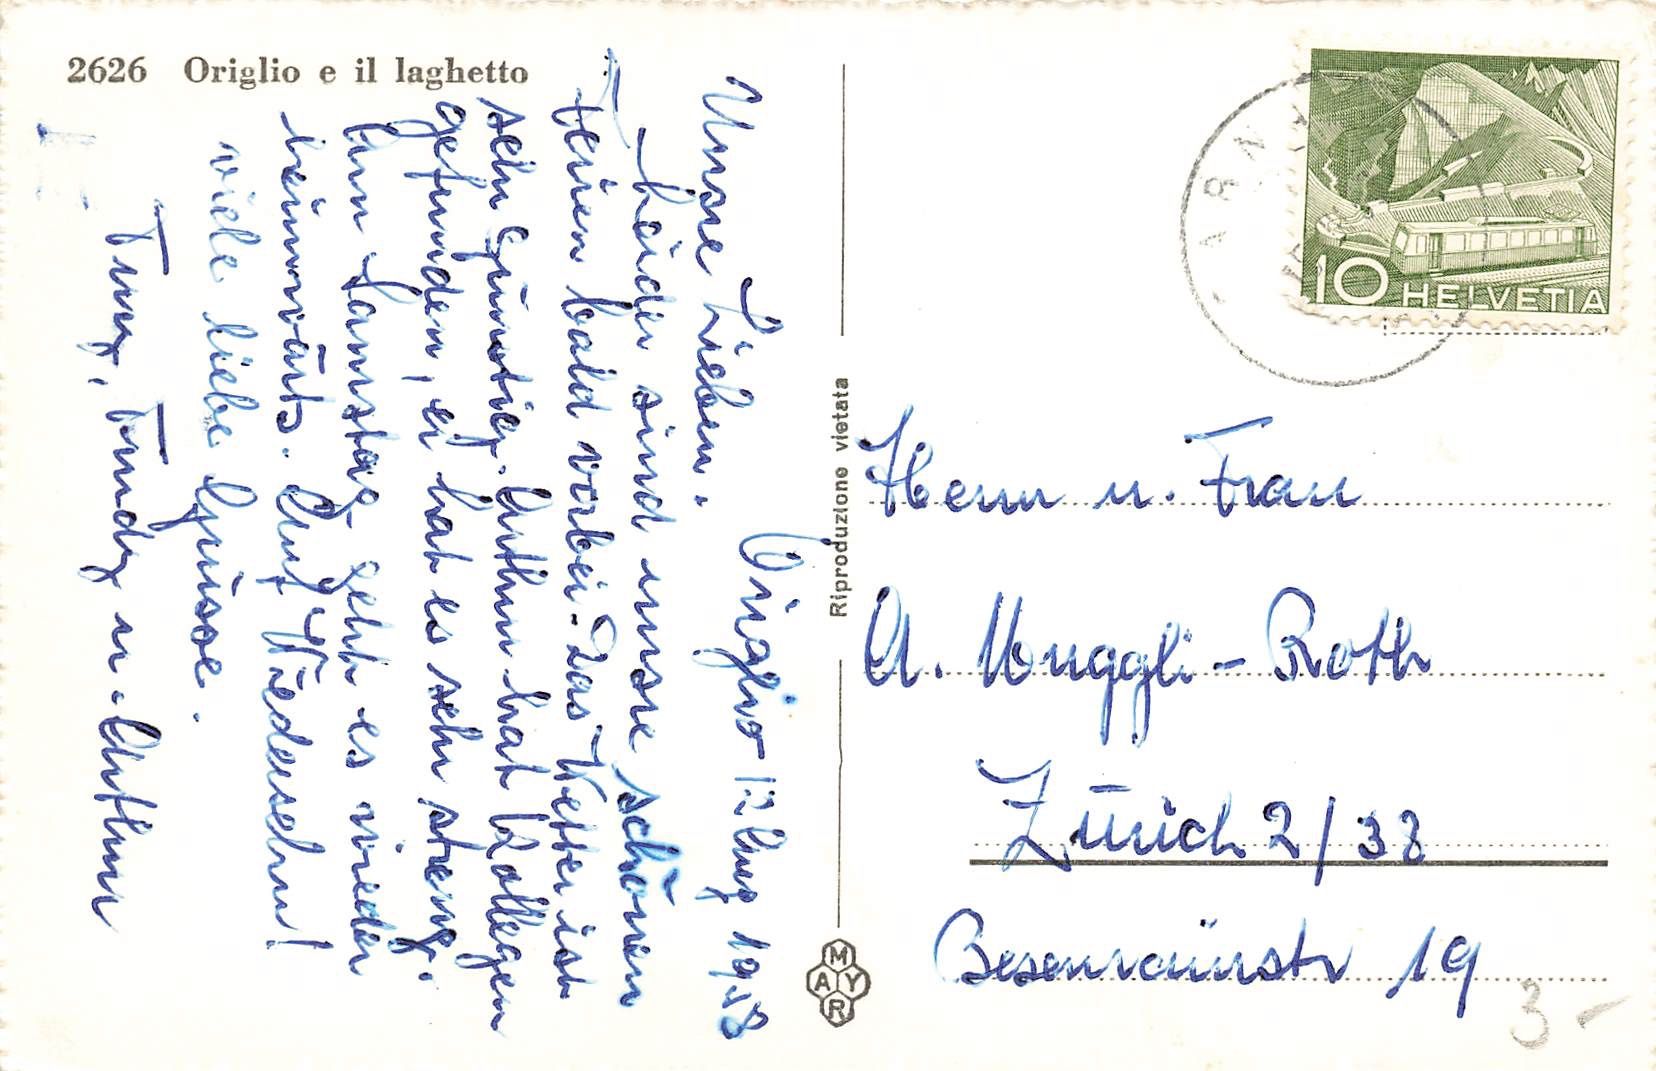 2626 Origlio e il laghetto
Origlio 12 Aug 1958
Unsre Lieben.
Leider sind unsre schönen
Ferien bald vorbei. Das Wetter ist
sehr günstig. Arthur hat Kollegen
gefunden, er hat es sehr streng.
Am Samstag geht es wieder
heimwärts. Auf Wiedersehn!
viele liebe Grüsse.
Trudy u. Arthur
Riproduzione vietata
MAYR
10 HELVETIA
Herrn u. Frau
A. Muggli-Roth
Zürich 2/38
19
3.-